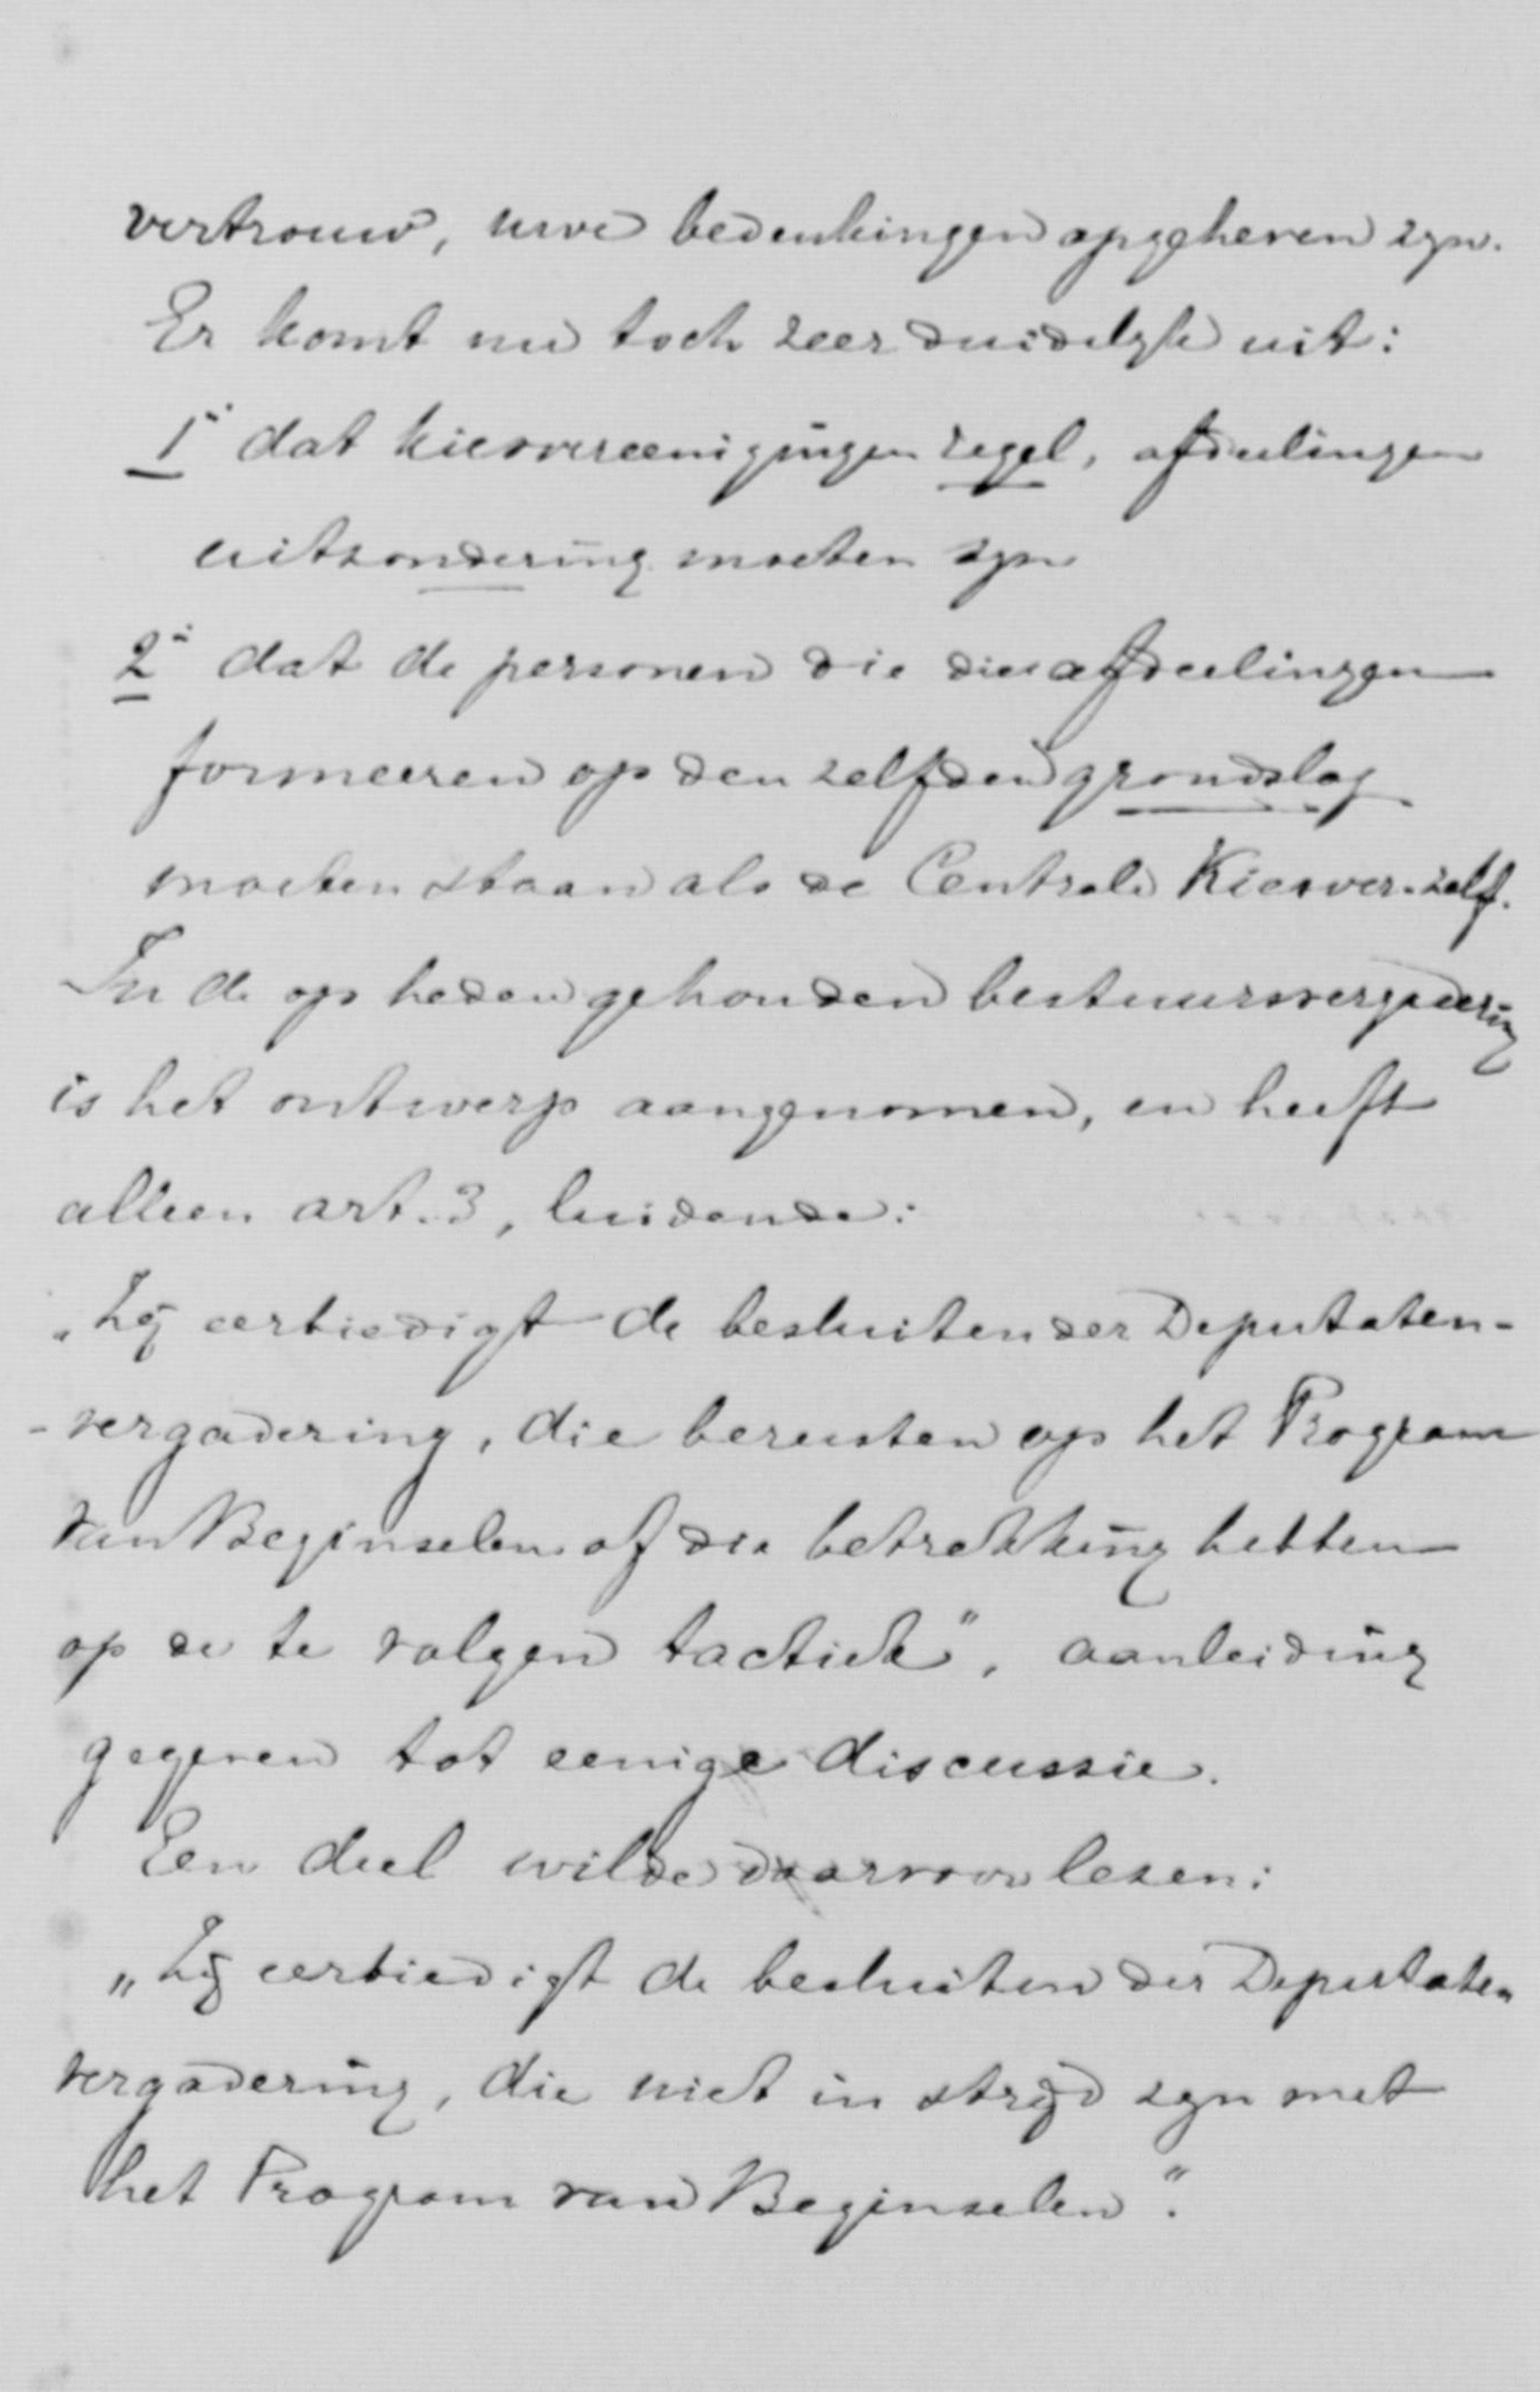 vertrouw, uwe bedenkingen opgeheven zyn.
Er komt nu toch zeer duidelyk uit:
1° dat kiesvereenigingen regel, afdeelingen
uitzondering moeten zyn
2° dat de personen die die afdeelingen
formeeren op den zelfden grondslag
moeten staan als de Centrale Kiesver. zelf.
In de op heden gehouden bestuursvergadering
is het ontwerp aangenomen, en heeft
alleen art. 3, luidende:
„Zij eerbiedigt de besluiten der Deputaten-
-vergadering, die berusten op het Program
van Beginselen of die betrekking hebben
op de te volgen tactiek", aanleiding
gegeven tot eenige discussie.
Een deel wilde daarvoor lezen:
„Zij eerbiedigt de besluiten der Deputaten
vergadering, die niet in strijd zyn met
het Program van Beginselen".